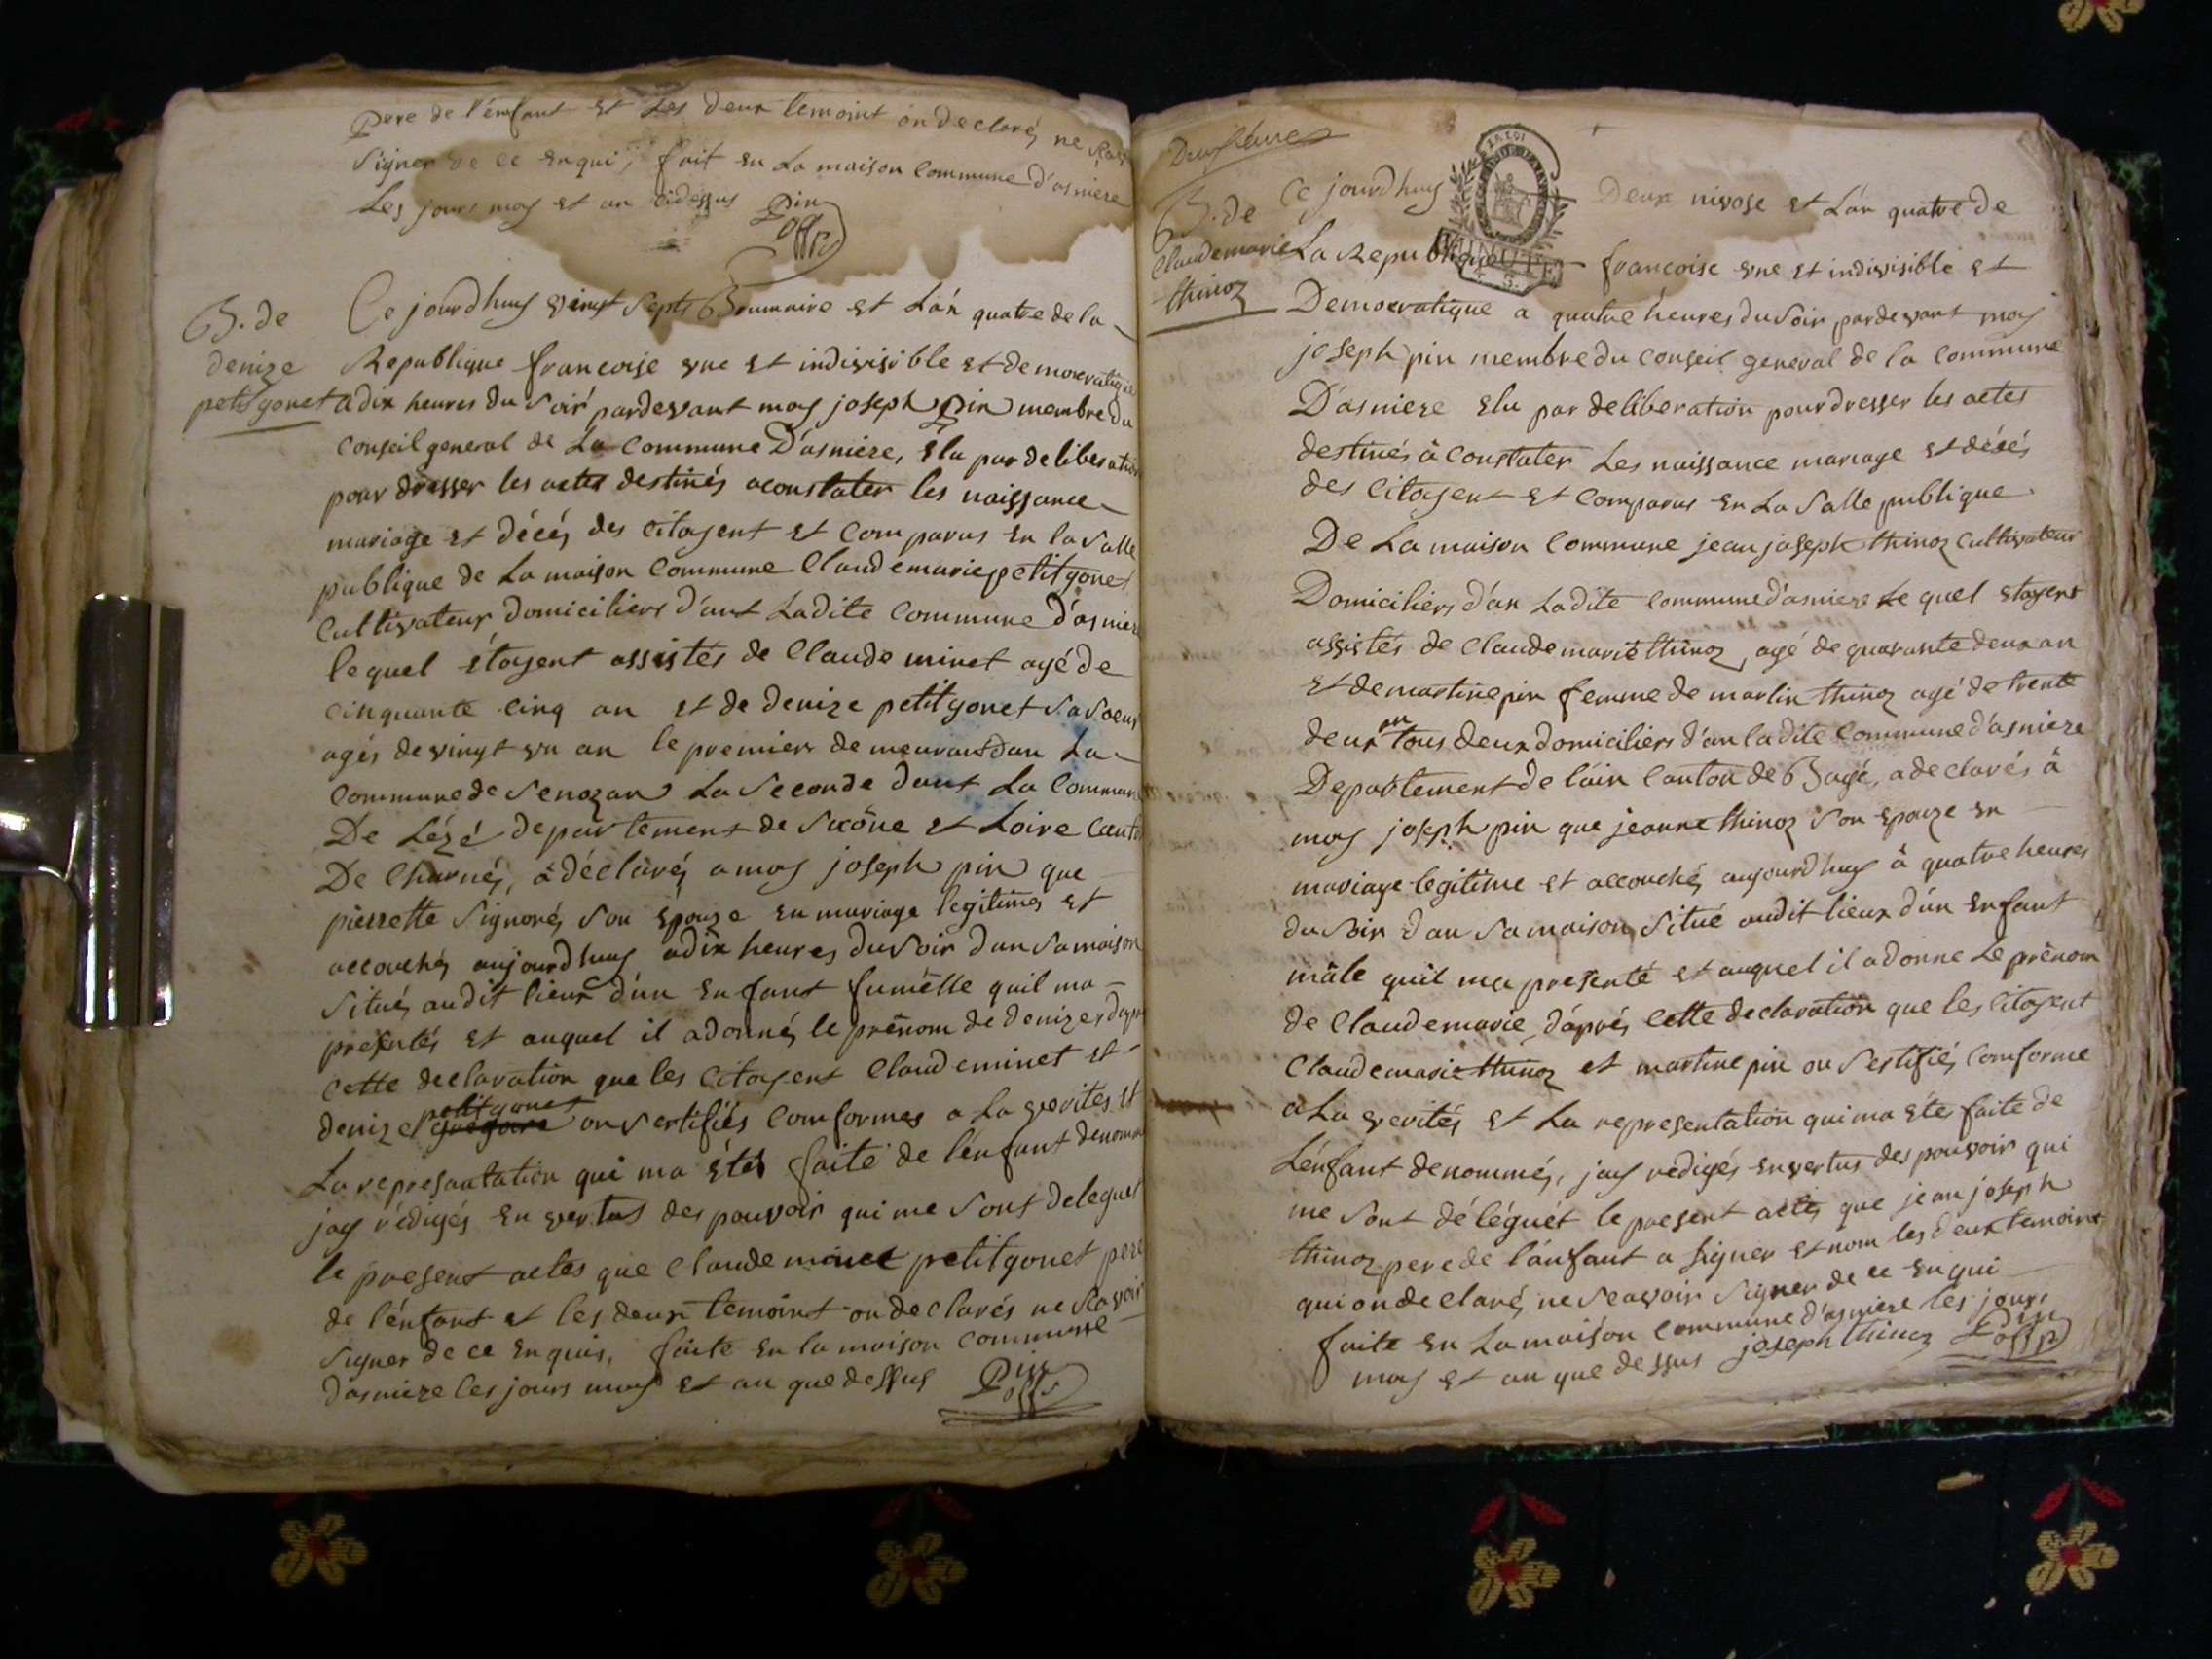 Pere de l'énfant et Les deux temoint on declaré, ne
Signer de ce enqui, fait en La maison Commune d'asniere
Les jours moy et an cidessus Pin
off

B. de
denize
petitgonet

Ce jourdhuy vingt Septs Brumaire et L'an quatre de la
Republique francoise une et indivisible et democratique
a dix heures du Soir pardevant moy joseph Pin membre du
Conseil general de La Commune D'asniere, Elu par deliberation
pour dresser les actes destinés aconstater les naissance
mariage et décés, des Citoyent et Comparus En la Salle
publique de La maison Commune Claudemarie petitgonet
Cultivateur domiciliers d'ant Ladite Commune d'asniere
lequel étoyent assistés de Claude minet agé de
Cinquante Cinq an et de denize petitgonet Sa Soeur
agés de vingt un an le premiers demeurant dan La
Commune de Senozan La Seconde dant La Commune
De Lézé departement de Saône et Loire Canton
De Charné, a déclaré, a moy joseph pin que
pierrette Signoré, Son Epouze en mariage legitimes et
accouché, aujourdhuy a dix heures du Soir dan Sa maison
Situé, audit lieux d'un Enfant fumelle quil ma
presentés et auquel il a donné, le prênom de denize, dapré
Cette declaration que les Citoyent Claude minet et
denize petitgonet on Sertifiés Comformes a La verités, et
La represantation qui ma étés faite de l'énfant denommé
jay rédigés En vertus des pouvoir qui me Sont delegués
le present actes que Claude petitgonet pere
de l'énfant et les deux temoint on declarés ne Scavoir
Signer de ce enquis, faite en la maison Commune
D'asniere les jours moy et an que dessus Pin
off

B. de
Claudemarie
thinoz

Ce jourdhuy Deux nivose et L'an quatre de
La Republique francoise une et indivisible et
MINUTE
Democratique a quatre heures du Soir pardevant moy
joseph pin membre du Conseil general de la Commune
D'asniere Elu par deliberation pour dresser les actes
destinés à Constater Les naissance mariage et décés
des Citoyent et Comparus En La Salle publique
De La maison Commune jean joseph thinoz Cultivateur
Domiciliers d'an Ladite Commune d'asniere Le quel etoyent
assistés de Claudemarie thinoz, agé de quarante deux an
et de martine pin femme de martin thinoz agé de trente
deux an tous deux domiciliers d'an ladite Commune d'asniere
Departement de l'ain Canton de Bagé, a declarés, à
moy joseph pin que jeanne thinoz Son Epouze en
mariage legitime et accouché, aujourdhuy à quatre heures
du Soir dan Sa maison, Situé audit lieux d'un Enfant
mâle quil ma presenté et auquel il a donne Le prênom
de Claudemarie, d'aprés, Cette declaration que les Citoyent
Claudemarie thinoz et martine pin on Sertifiés, Comforme
a La verités, et La representation qui ma étés faite de
L'énfant denommés, jay redigés en vertus des pouvoir qui
me Sont délégués le present actes que jean joseph
thinoz pere de l'anfant a Signer et nom les deux temoint
qui on declaré, ne Scavoir Signer de ce enqui
faite en La maison Commune d'asniere les jours
moy et an que dessus joseph thinoz Pin
off